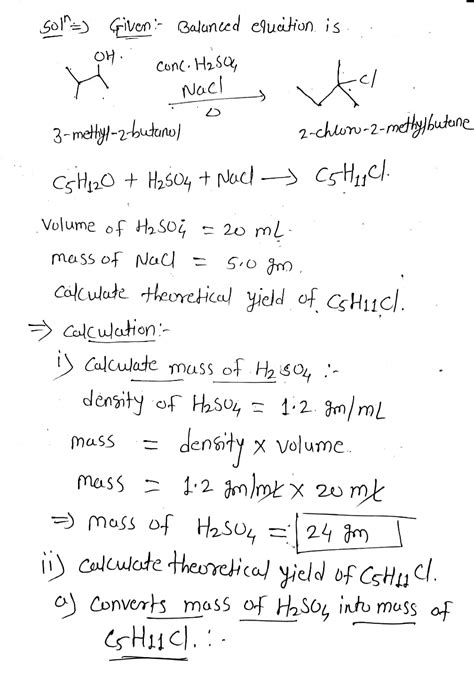 Solⁿ ⇒ Given:- Balanced equation is
OH
Cl
conc. H2SO4
NaCl
Δ
3-methyl-2-butanol
2-chloro-2-methylbutane
C5H12O + H2SO4 + NaCl → C5H11Cl.
Volume of H2SO4 = 20 mL.
mass of NaCl = 5.0 gm.
Calculate theoretical yield of C5H11Cl.
⇒ Calculation:-
i) Calculate mass of H2SO4 :-
density of H2SO4 = 1.2 gm/mL
mass = density x volume.
mass = 1.2 gm/mL x 20 mL
⇒ mass of H2SO4 = 24 gm
ii) Calculate theoretical yield of C5H11Cl.
a) Converts mass of H2SO4 into mass of
C5H11Cl. :-